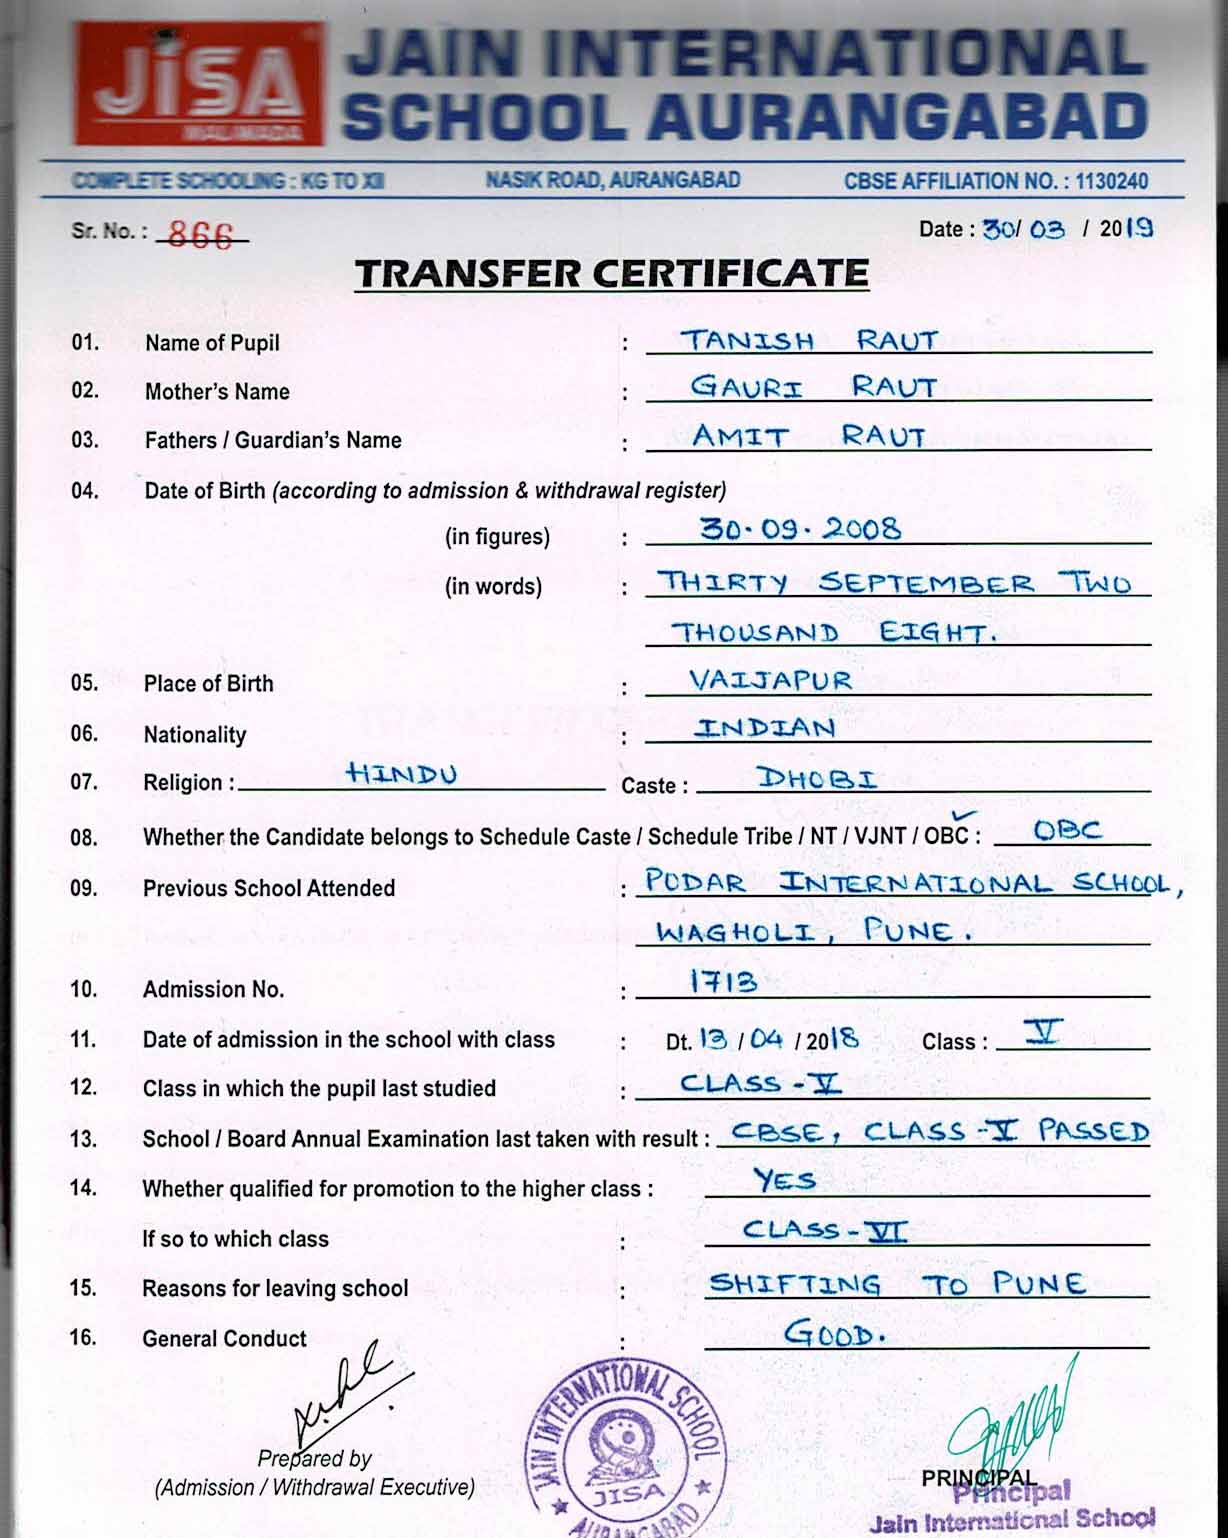 JISA
MALIWADA
JAIN INTERNATIONAL
SCHOOL AURANGABAD
COMPLETE SCHOOLING : KG TO XII NASIK ROAD, AURANGABAD CBSE AFFILIATION NO. : 1130240
Sr. No. : 866 Date : 30/ 03 / 2019
TRANSFER CERTIFICATE
01. Name of Pupil : TANISH RAUT
02. Mother's Name : GAURI RAUT
03. Fathers / Guardian's Name : AMIT RAUT
04. Date of Birth (according to admission & withdrawal register)
(in figures) : 30·09·2008
(in words) : THIRTY SEPTEMBER TWO
THOUSAND EIGHT.
05. Place of Birth : VAIJAPUR
06. Nationality : INDIAN
07. Religion : HINDU Caste : DHOBI
08. Whether the Candidate belongs to Schedule Caste / Schedule Tribe / NT / VJNT / OBC : OBC
09. Previous School Attended : PODAR INTERNATIONAL SCHOOL,
WAGHOLI, PUNE.
10. Admission No. : 1713
11. Date of admission in the school with class : Dt. 13 / 04 / 2018 Class : V
12. Class in which the pupil last studied : CLASS - V
13. School / Board Annual Examination last taken with result : CBSE, CLASS - V PASSED
14. Whether qualified for promotion to the higher class : YES
If so to which class : CLASS - VI
15. Reasons for leaving school : SHIFTING TO PUNE
16. General Conduct : GOOD.
JAIN INTERNATIONAL SCHOOL
JISA
AURANGABAD
Prepared by
(Admission / Withdrawal Executive)
PRINCIPAL
Principal
Jain International School